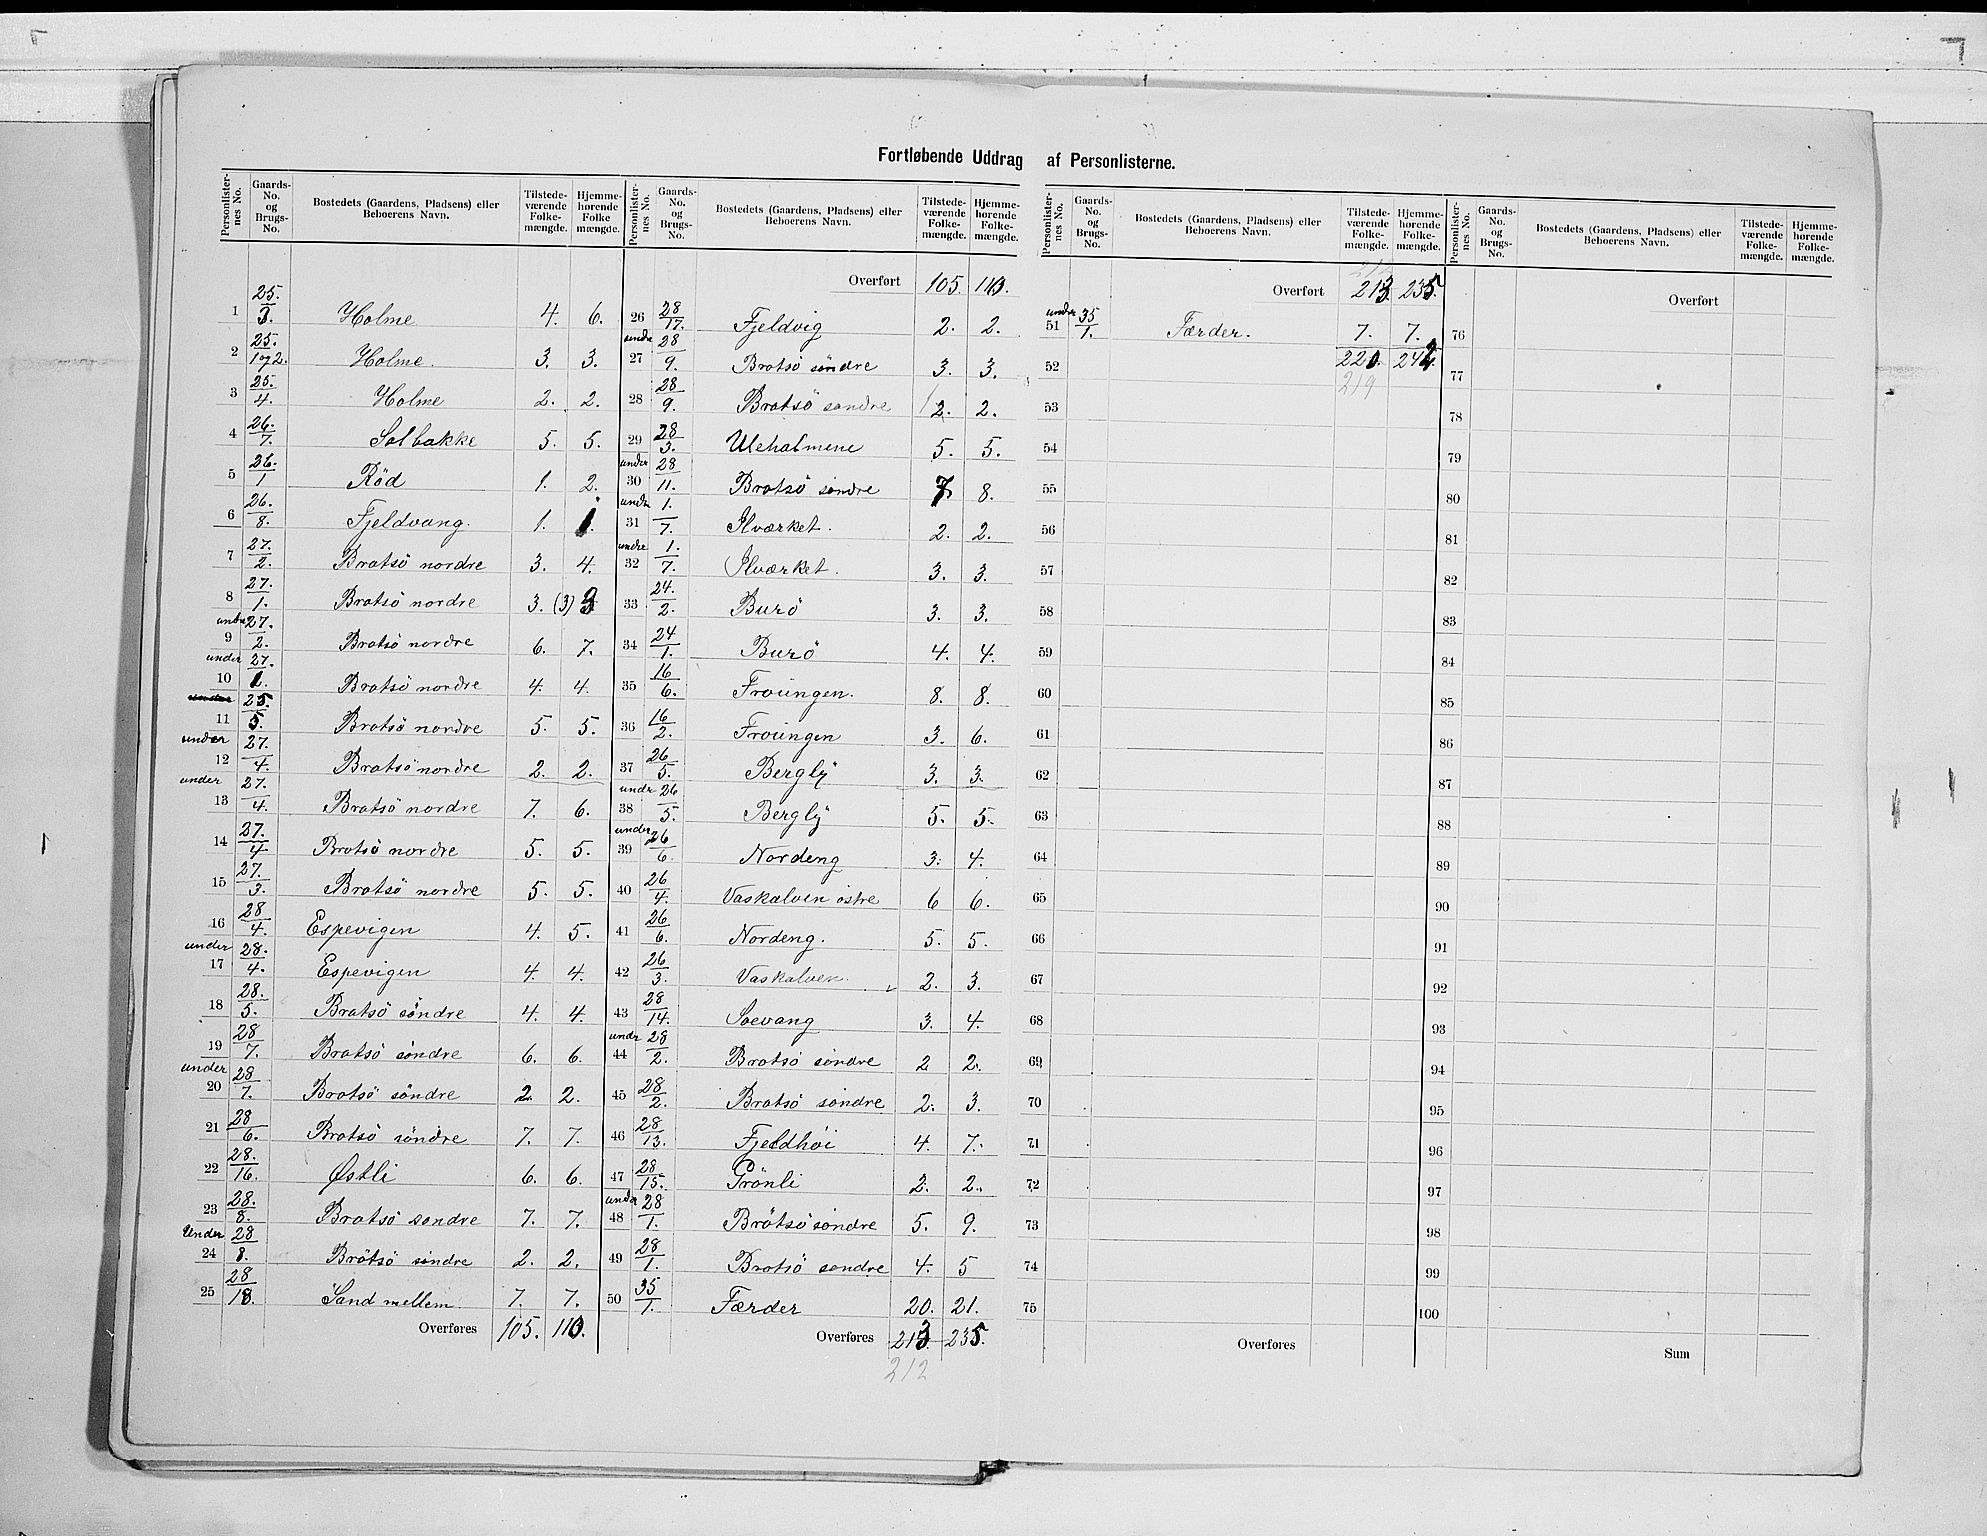 Fortløbende Uddrag af Personlisterne.
Personlisternes No. | Gaards-No. og Brugs-No. | Bostedets (Gaardens, Pladsens) eller Beboerens Navn. | Tilstedeværende Folkemængde. | Hjemmehørende Folkemængde.
1 25./3. Holme 4. 6.
2 25./1 og 2. Holme. 3. 3.
3 25./4. Holme 2. 2.
4 26./7. Solbakke 5. 5.
5 26./1 Röd 1. 2.
6 26./8. Fjeldvang. 1. 1.
7 27./2. Bratsö nordre 3. 4.
8 27./1. Bratsö nordre 3. (3) 3
under 9 27./2. Bratsö nordre 6. 7.
under 10 27./1. Bratsö nordre 4. 4.
11 25./5. Bratsö nordre 5. 5.
under 12 27./4. Bratsö nordre 2. 2.
under 13 27./4. Bratsö nordre 7. 6.
14 27./4 Bratsö nordre 5. 5.
15 27./3. Bratsö nordre 5. 5.
16 28/4. Espevigen 4. 5.
under 17 28./4. Espevigen 4. 4.
18 28./5. Bratsö söndre 4. 4.
19 28/7. Bratsö söndre 6. 6.
under 20 28/7. Bratsö söndre 2. 2.
21 28/6. Bratsö söndre 7. 7.
22 28./16. Østli 6. 6.
23 28./8. Bratsö søndre 7. 7.
Under 24 28/8. Brötsö söndre 2. 2.
25 28/18. Sand mellem. 7. 7.
Overføres 105. 110.
Overført 105. 110.
26 28/17. Fjeldvig 2. 2.
under 27 28/9. Bratsö söndre 3. 3.
28 28/9. Bratsö søndre 2. 2.
29 28/3. Uleholmene 5. 5.
under 30 28/11. Bratsö søndre 7. 8.
under 31 1./7. Ilværket. 2. 2.
under 32 1./7. Ilværket. 3. 3.
33 24./2. Burö 3. 3.
34 24/1. Burö 4. 4.
35 16/6. Frouingen. 8. 8.
36 16/2. Frouingen 3. 6.
37 26/5. Bergly 3. 3.
under 38 26/5. Bergly 5. 5.
under 39 26/6. Nordeng 3. 4.
40 26/4. Vaskalven østre 6 6.
41 26/6. Nordeng. 5. 5.
42 26/3. Vaskalven. 2. 3.
43 28/14. Soevang 3. 4.
under 44 28/2. Bratsö søndre 2 2.
45 28/2. Bratsö søndre 2. 3.
46 28/13. Fjeldhöi 4. 7.
47 28/15. Grönli 2. 2.
under 48 28/1. Brötsö søndre 5. 9.
49 28/1. Bratsö søndre 4. 5
50 35/1. Færder 20. 21.
Overføres 213. 235.
212
Personlisternes No. | Gaards-No. og Brugs-No. | Bostedets (Gaardens, Pladsens) eller Beboerens Navn. | Tilstedeværende Folkemængde. | Hjemmehørende Folkemængde.
212
Overført 213. 235.
under 51 35/1. Færder. 7. 7.
52 220. 242.
219
53
54
55
56
57
58
59
60
61
62
63
64
65
66
67
68
69
70
71
72
73
74
75
Overføres
Overført
76
77
78
79
80
81
82
83
84
85
86
87
88
89
90
91
92
93
94
95
96
97
98
99
100
Sum